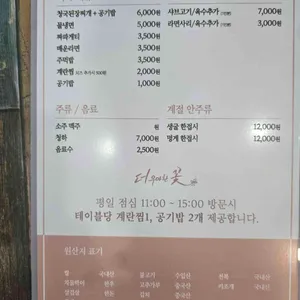 청국된장찌개 + 공기밥 6,000원
물냉면 5,000원
짜파게티 3,500원
매운라면 3,500원
주먹밥 3,500원
계란찜 2,000원
공기밥 1,000원
샤브고기/육수추가 7,000원
라면사리/육수추가 3,000원
주류 / 음료
소주 맥주 원
청하 7,000원
음료수 2,500원
계절 안주류
생굴 한접시 12,000원
멍게 한접시 12,000원
평일 점심 11:00 - 15:00 방문시
테이블당 계란찜1, 공기밥 2개 제공합니다.
원산지 표기
쌀 국내산
불고기 수입산
국내산
고추가루 중국산
국내산
김치 중국산